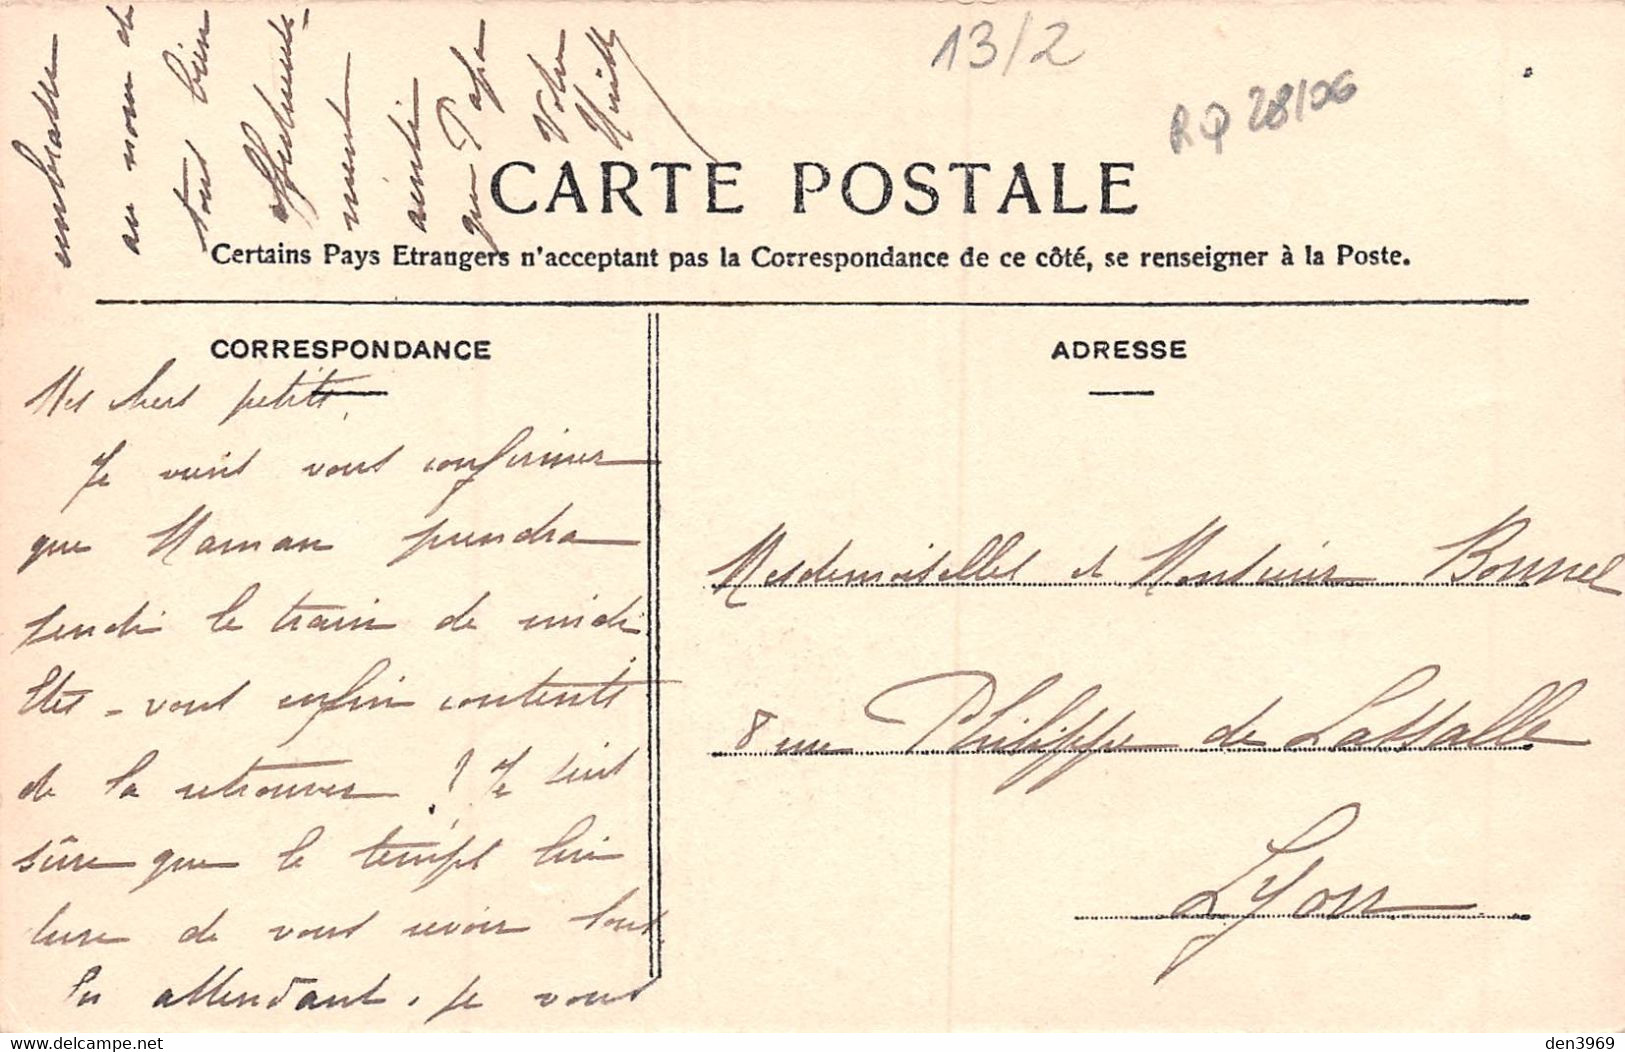 13/2
RP 28/06
CARTE POSTALE
Certains Pays Etrangers n'acceptant pas la Correspondance de ce côté, se renseigner à la Poste.
CORRESPONDANCE
Mes chers petits,
Je viens vous confirmer
que Maman prendra
jeudi le train de midi.
Etes-vous enfin contents
de la retrouver ? Je suis
sûre que le temps lui
dure de vous revoir tous.
En attendant, je vous
embrasse
au nom de
tous bien
affectueuse-
ment
ainsi
que Papa
Votre
ADRESSE
Mesdemoiselles et Monsieur Bonnel
8 rue Philippe de Lassalle
Lyon
den3969